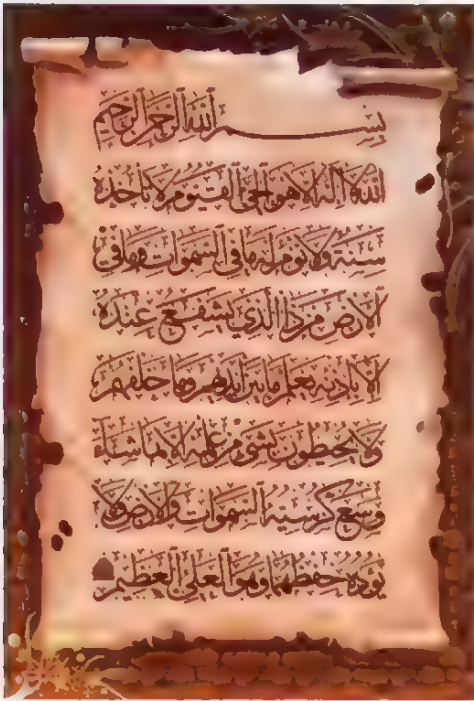 بِسْمِ اللَّهِ الرَّحْمَٰنِ الرَّحِيمِ
اللَّهُ لَا إِلَٰهَ إِلَّا هُوَ الْحَيُّ الْقَيُّومُ لَا تَأْخُذُهُ
سِنَةٌ وَلَا نَوْمٌ لَهُ مَا فِي السَّمَوَاتِ وَمَا فِي
الْأَرْضِ مَنْ ذَا الَّذِي يَشْفَعُ عِنْدَهُ
إِلَّا بِإِذْنِهِ يَعْلَمُ مَا بَيْنَ أَيْدِيهِمْ وَمَا خَلْفَهُمْ
وَلَا يُحِيطُونَ بِشَيْءٍ مِنْ عِلْمِهِ إِلَّا بِمَا شَاءَ
وَسِعَ كُرْسِيُّهُ السَّمَوَاتِ وَالْأَرْضَ وَلَا
يَئُودُهُ حِفْظُهُمَا وَهُوَ الْعَلِيُّ الْعَظِيمُ